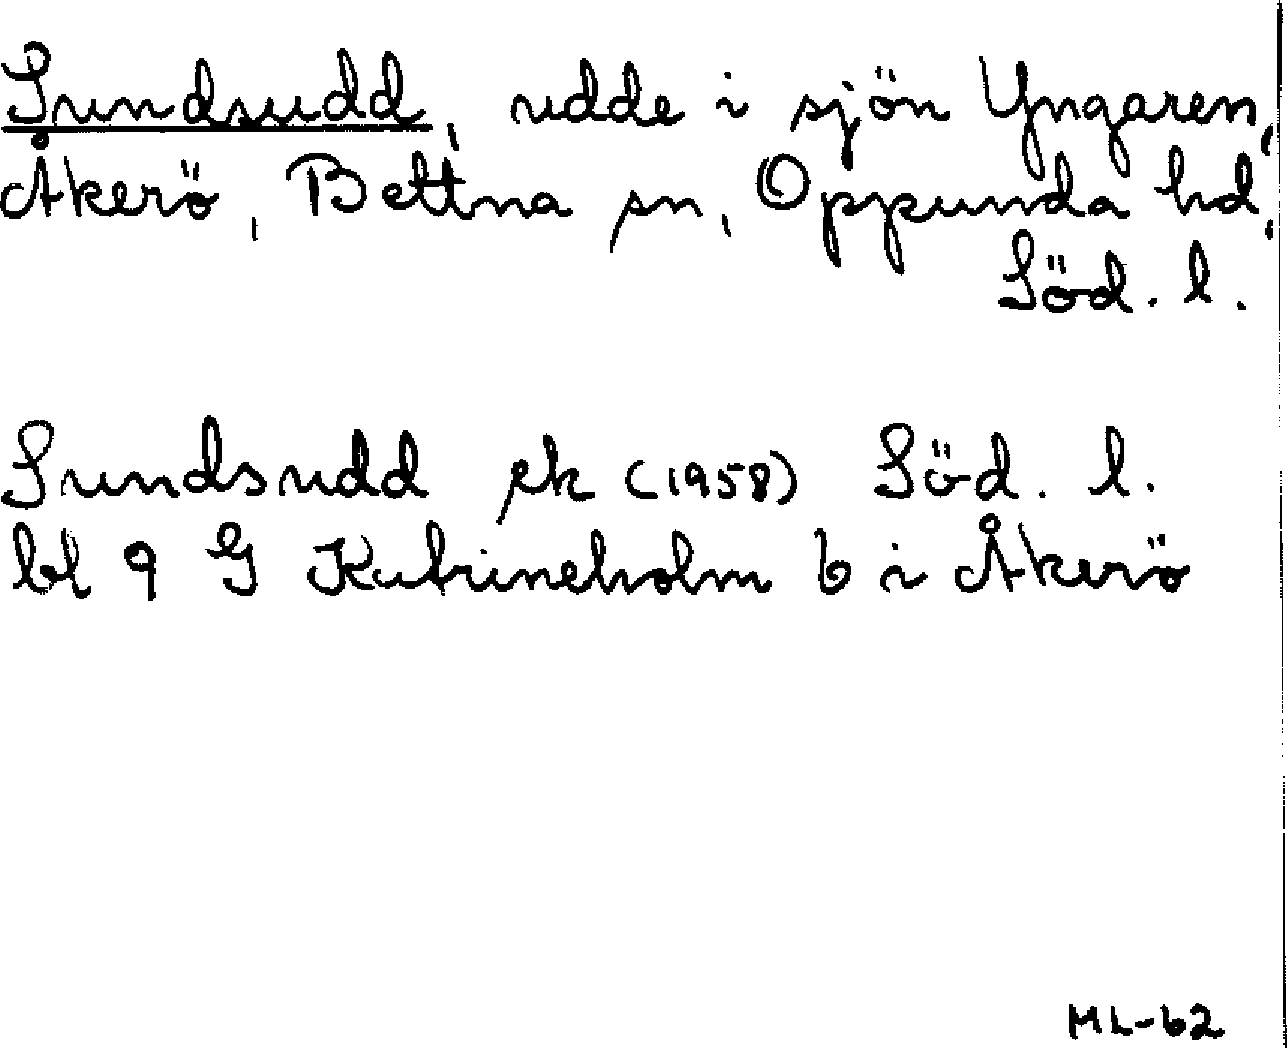 Sundsudd, udde i sjön Yngaren,
Åkerö, Bettna sn, Oppunda hd,
Söd. l.
Sundsudd ek (1958) Söd. l.
bl 9 G Katrineholm b i Åkerö
ML-62